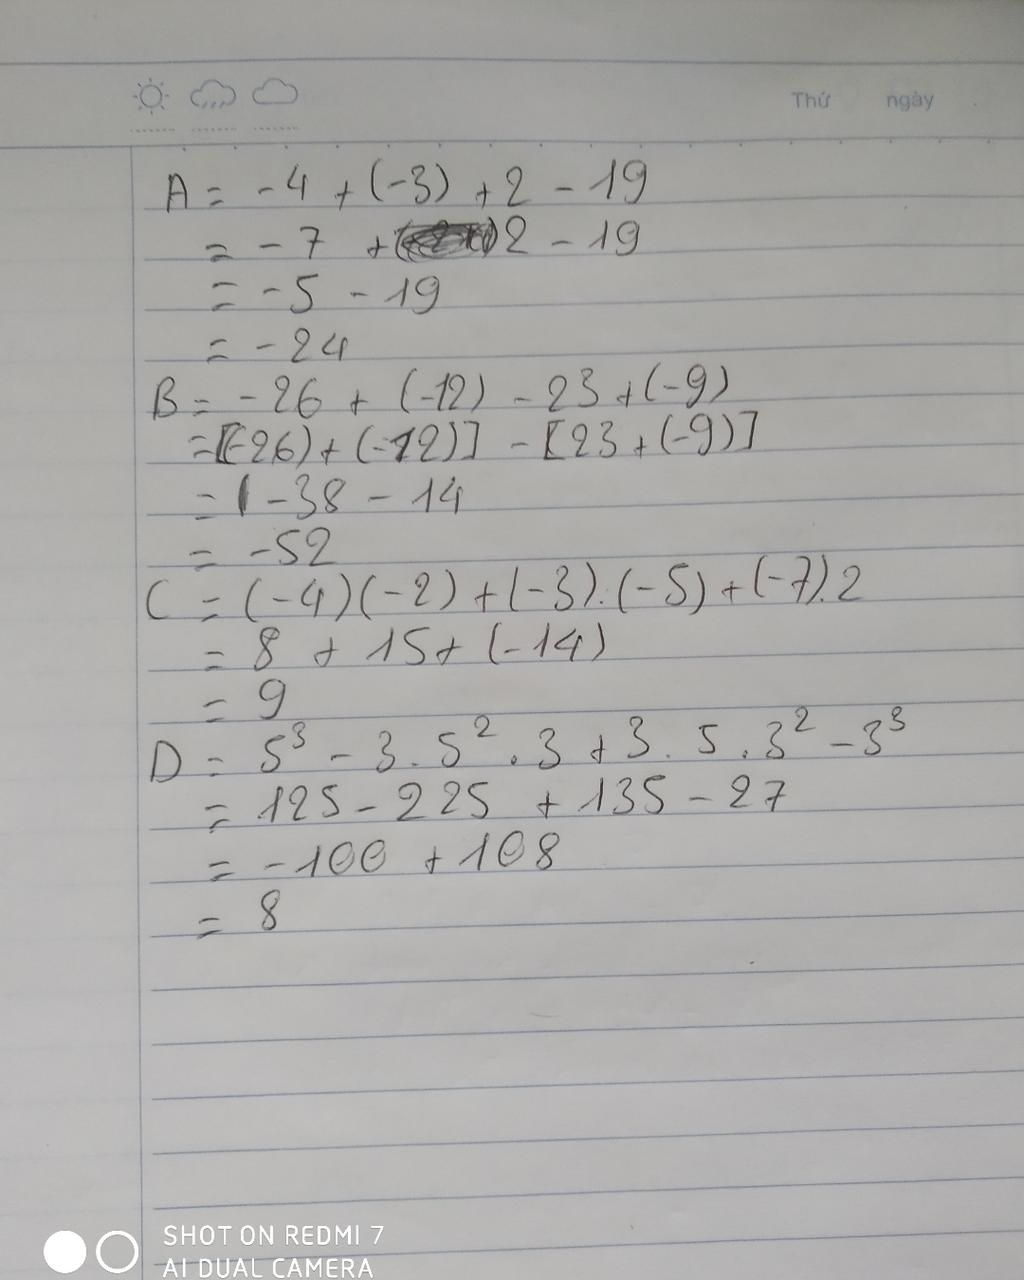 Thứ ngày
A = -4 + (-3) + 2 - 19
= -7 + 2 - 19
= -5 - 19
= -24
B = -26 + (-12) - 23 + (-9)
= [(-26) + (-12)] - [23 + (-9)]
= -38 - 14
= -52
C = (-4)(-2) + (-3).(-5) + (-7).2
= 8 + 15 + (-14)
= 9
D = 5³ - 3.5².3 + 3.5.3² - 3³
= 125 - 225 + 135 - 27
= -100 + 108
= 8
SHOT ON REDMI 7
AI DUAL CAMERA